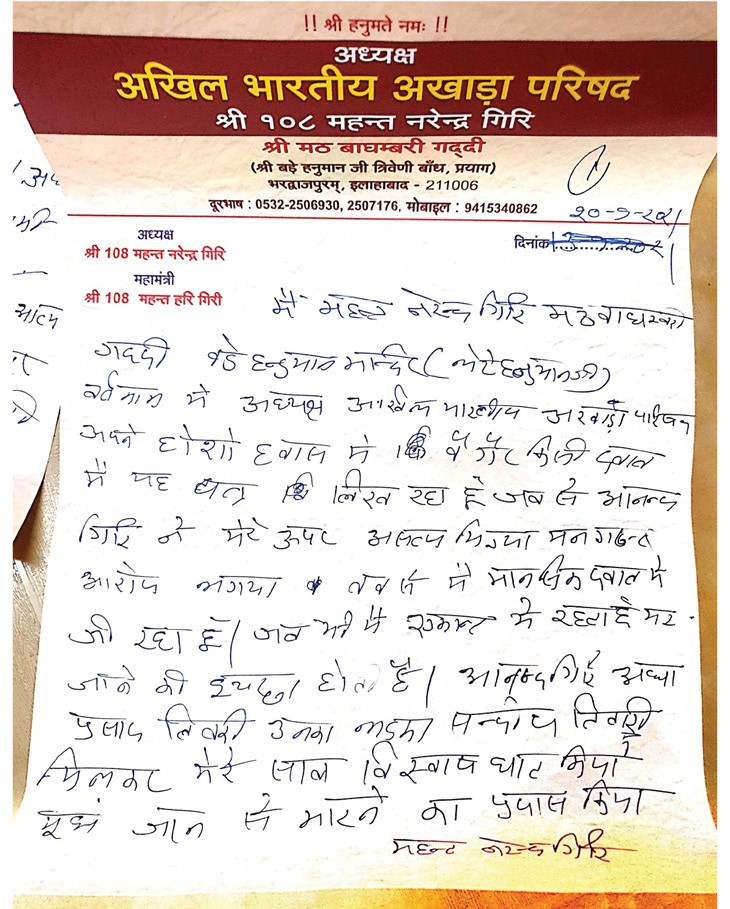 !! श्री हनुमते नमः !!
अध्यक्ष
अखिल भारतीय अखाड़ा परिषद
श्री १०८ महन्त नरेन्द्र गिरि
श्री मठ बाघम्बरी गद्दी
(श्री बड़े हनुमान जी त्रिवेणी बाँध, प्रयाग)
भरद्वाजपुरम्, इलाहाबाद - 211006
दूरभाष : 0532-2506930, 2507176, मोबाइल : 9415340862
अध्यक्ष
श्री 108 महन्त नरेन्द्र गिरि
महामंत्री
श्री 108 महन्त हरि गिरी
1
दिनांक
मै महन्त नरेन्द्र गिरि मठ बाघम्बरी
गद्दी बडे हनुमान मन्दिर (लेटे हनुमानजी)
वर्तमान मे अध्यक्ष अखिल भारतीय अखाड़ा परिषद
अपने होशो हवास मे बगैर किसी दवाव
मै यह पत्र लिख रहा हूँ जब से आनन्द
गिरि ने मेरे ऊपर असत्य मिथ्या मनगढन्त
आरोप लगाया तब से मै मानसिक दवाव मे
जी रहा हूँ। जब भी मै एकान्त मे रहता हूँ मर
जाने की इच्छा होती है। आनन्द गिरि अध्या
प्रसाद तिवारी उनका लड़का सन्दीप तिवारी
मिलकर मेरे साथ विश्वास घात किया
मुझे जान से मारने का प्रयास किया
महन्त नरेन्द्र गिरि